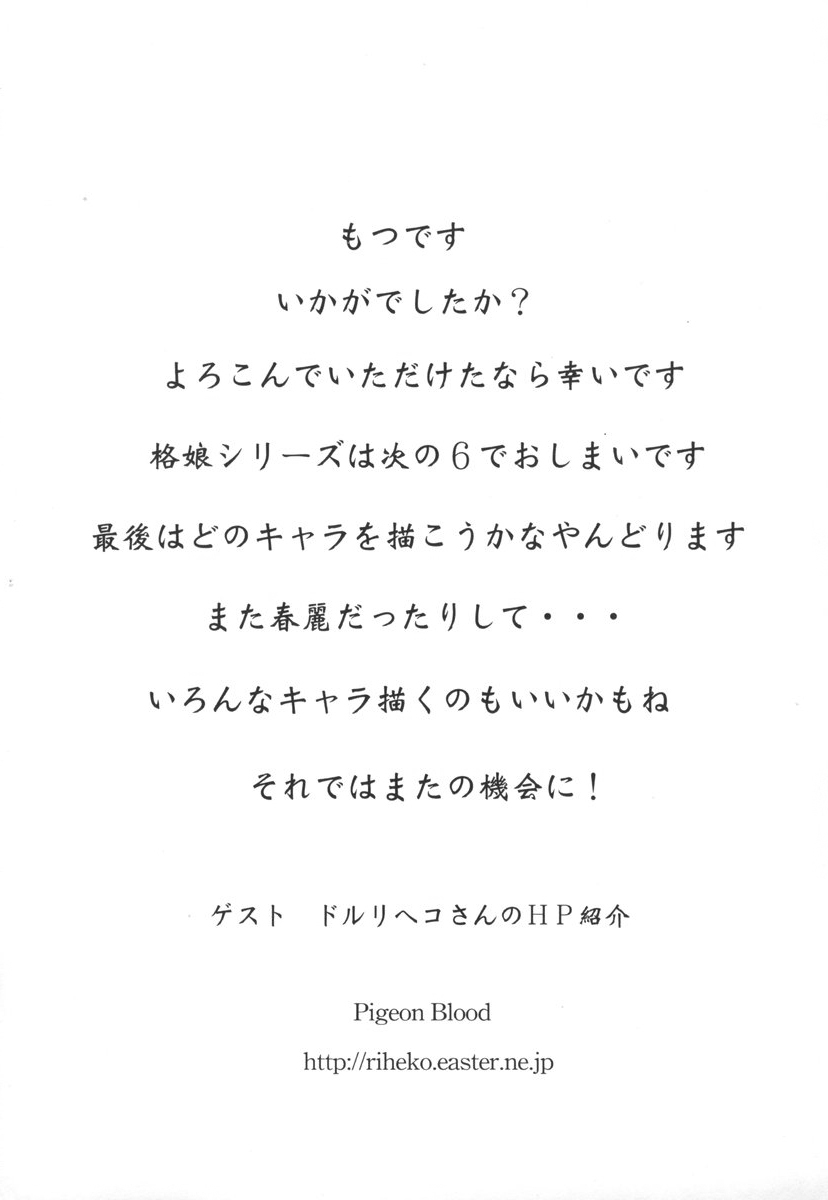 もつです
いかがでしたか？
よろこんでいただけたなら幸いです
格娘シリーズは次の６でおしまいです
最後はどのキャラを描こうかなやんどります
また春麗だったりして・・・
いろんなキャラ描くのもいいかもね
それではまたの機会に！
ゲスト　ドルリヘコさんのＨＰ紹介
Pigeon Blood
http://riheko.easter.ne.jp